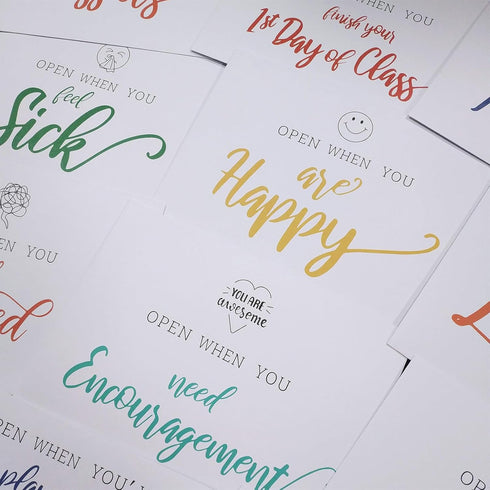 finish your
1st Day of Class
OPEN WHEN YOU
feel
Sick
OPEN WHEN YOU
are
Happy
YOU ARE
awesome
OPEN WHEN YOU
need
Encouragement
WHEN YOU